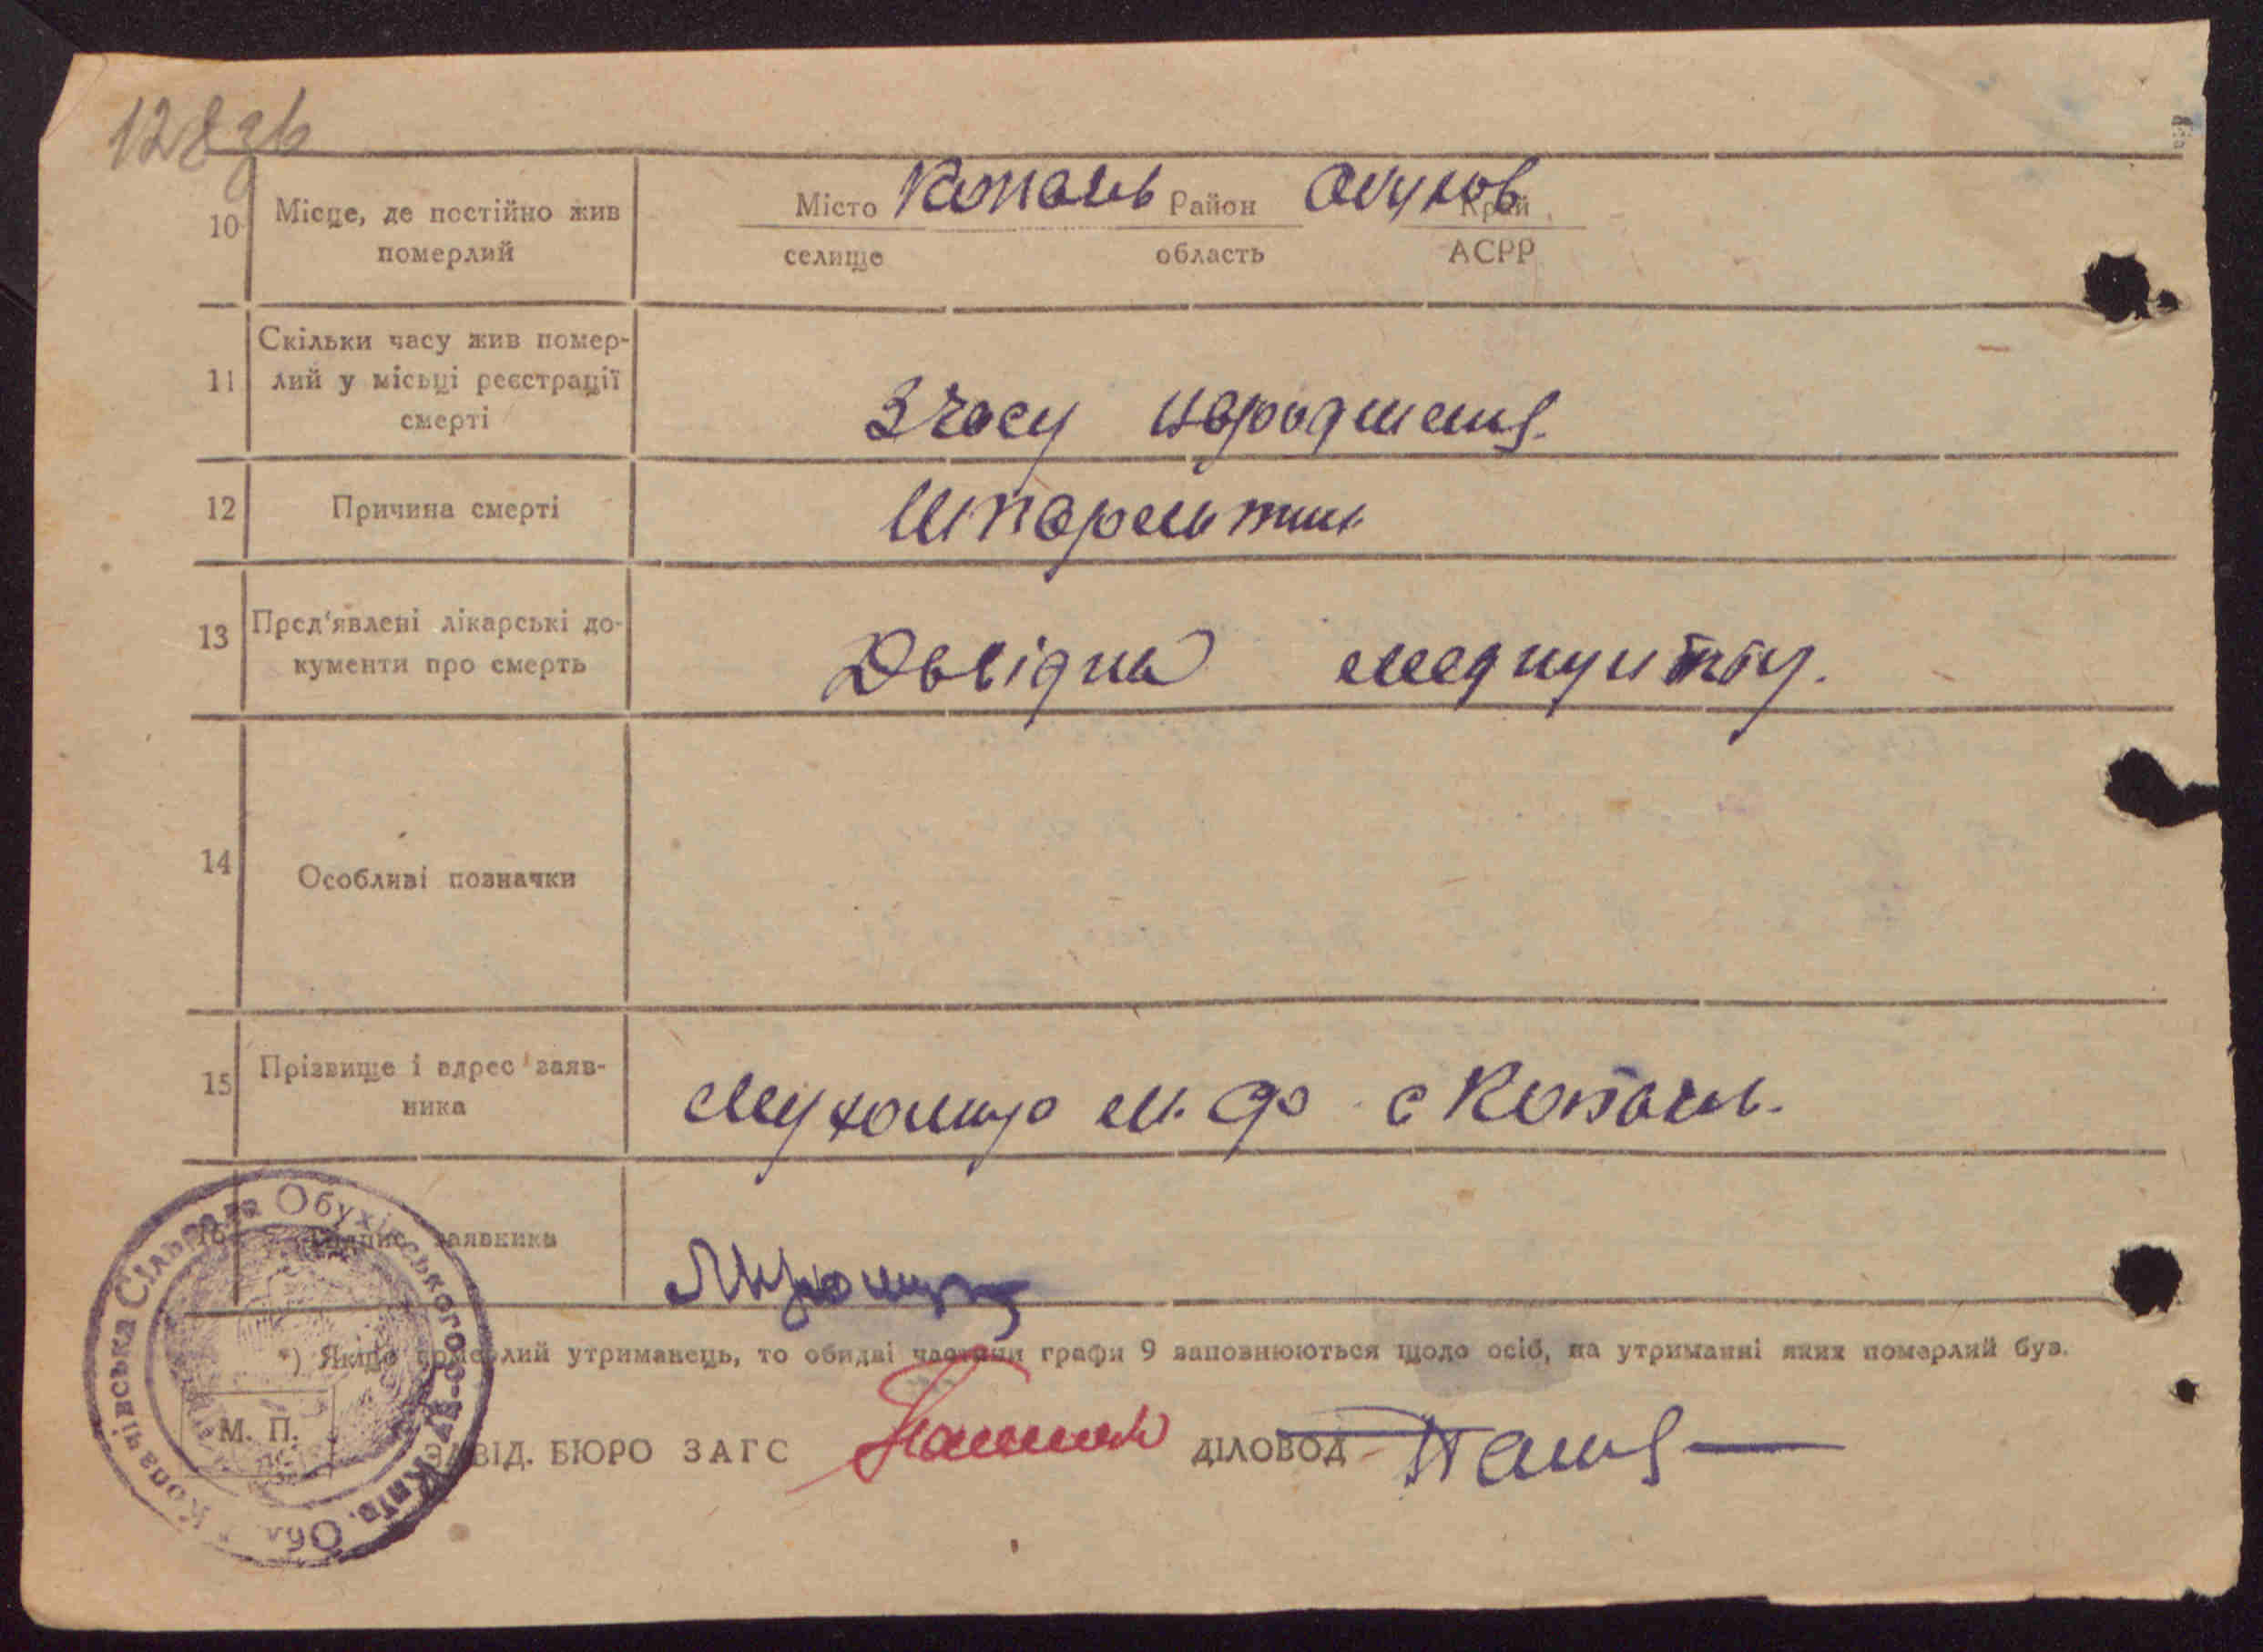 128 зв
10 Місце, де постійно жив померлий
Місто Копачів Район Обухов Край
селище область АСРР
11 Скільки часу жив помер-
лий у місьці реєстрації
смерті
З часу народження.
12 Причина смерті
13 Пред'явлені лікарські до-
кументи про смерть
Довідка медпункту.
14 Особливі позначки
15 Прізвище і адрес заяв-
ника
с Копачів.
16 Підпис заявника
*) Якщо померлий утриманець, то обидві частини графи 9 заповнюються щодо осіб, на утриманні яких померлий був.
М. П.
ЗАВІД. БЮРО ЗАГС ДІЛОВОД
Копачівська Сільрада Обухівського р-ну Київ. Обл.